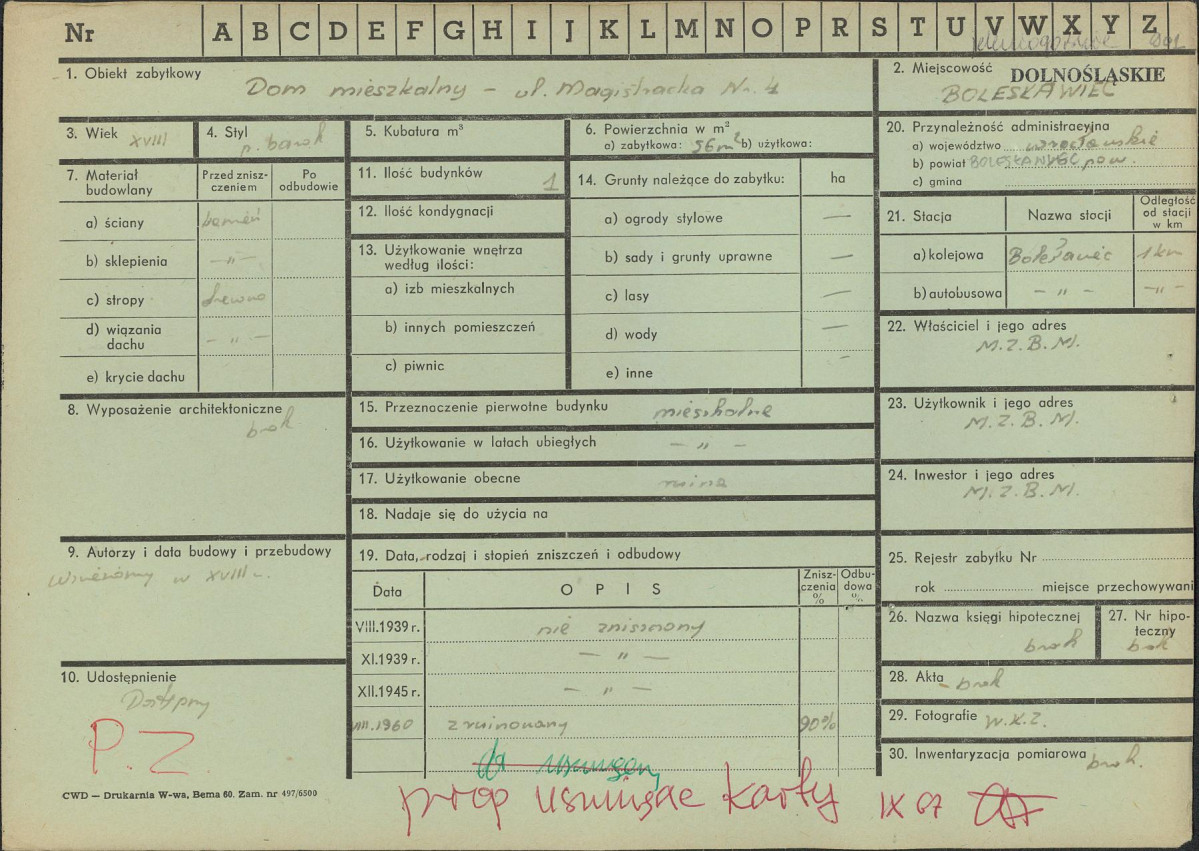 Nr A B C D E F G H I J K L M N O P R S T U V W X Y Z
1. Obiekt zabytkowy
Dom mieszkalny – ul. Magistracka Nr. 4
2. Miejscowość DOLNOŚLĄSKIE
BOLESŁAWIEC
3. Wiek XVIII
4. Styl p. barok
5. Kubatura m³
6. Powierzchnia w m²
a) zabytkowa: 56m² b) użytkowa:
7. Materiał budowlany
Przed zniszczeniem
Po odbudowie
a) ściany kamień
b) sklepienia – „ –
c) stropy drewno
d) wiązania dachu – „ –
e) krycie dachu
8. Wyposażenie architektoniczne
brak
9. Autorzy i data budowy i przebudowy
Wzniesiony w XVIII w.
10. Udostępnienie
Dostępny
P.Z.
11. Ilość budynków 1
12. Ilość kondygnacji
13. Użytkowanie wnętrza
według ilości:
a) izb mieszkalnych
b) innych pomieszczeń
c) piwnic
14. Grunty należące do zabytku: ha
a) ogrody stylowe —
b) sady i grunty uprawne —
c) lasy —
d) wody —
e) inne –
15. Przeznaczenie pierwotne budynku mieszkalne
16. Użytkowanie w latach ubiegłych – „ –
17. Użytkowanie obecne ruina
18. Nadaje się do użycia na
19. Data, rodzaj i stopień zniszczeń i odbudowy
Data OPIS Zniszczenia % Odbudowa %
VIII.1939 r. nie zniszczony
XI.1939 r. – „ –
XII.1945 r. – „ –
VIII.1960 zrujnowany 90%
do usunięcia
prop usunięcie karty IX 67
20. Przynależność administracyjna
a) województwo wrocławskie
b) powiat BOLESŁAWIEC pow.
c) gmina
21. Stacja Nazwa stocji Odległość od stacji w km
a) kolejowa Bolesławiec 1 km
b) autobusowa – „ – –„–
22. Właściciel i jego adres
M.Z.B.M.
23. Użytkownik i jego adres
M.Z.B.M.
24. Inwestor i jego adres
M.Z.B.M.
25. Rejestr zabytku Nr
rok miejsce przechowywani
26. Nazwa księgi hipotecznej
brak
27. Nr hipoteczny
brak
28. Akta – brak
29. Fotografie W.K.Z.
30. Inwentaryzacja pomiarowa brak.
CWD — Drukarnia W-wa, Bema 60. Zam. nr 497/6500